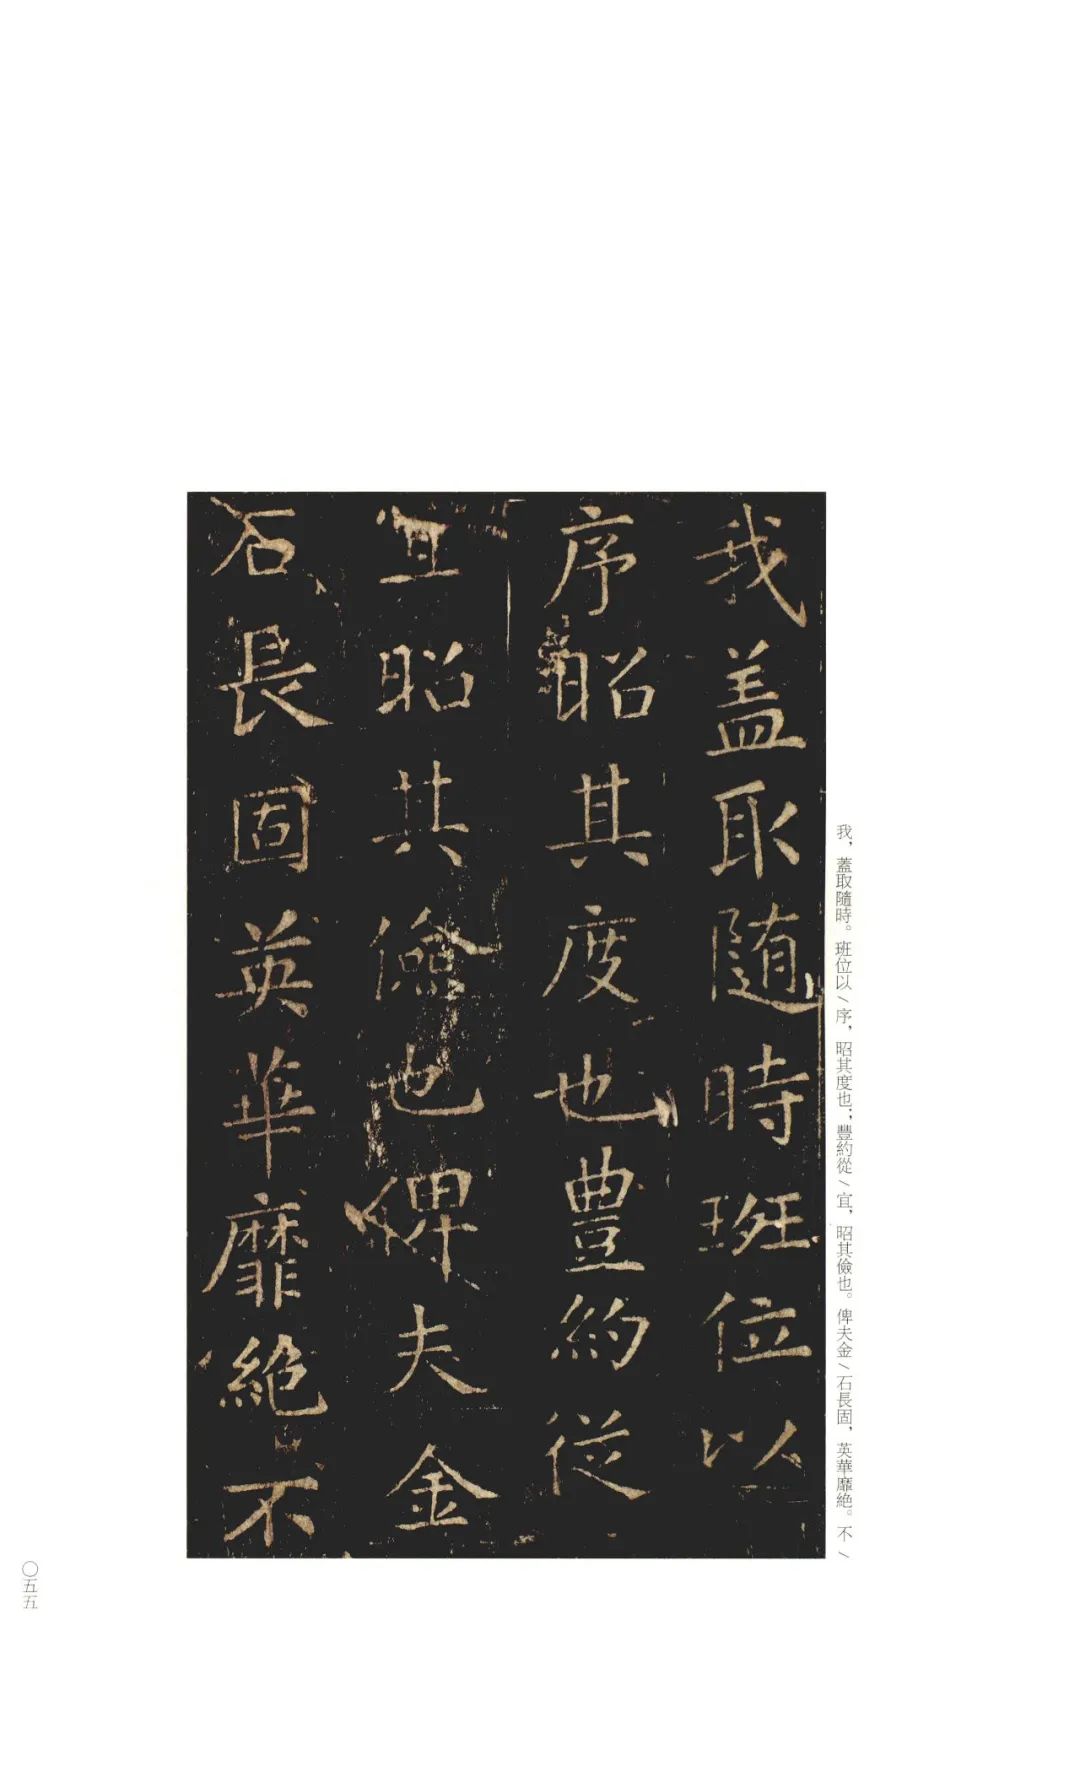 我盖取随時班位以
序昭其度也豊約従
宜昭其儉也俾夫金
石長固英華靡絶不
我，蓋取隨時。班位以／序，昭其度也；豐約從／宜，昭其儉也。俾夫金／石長固，英華靡絶。不／
〇五五